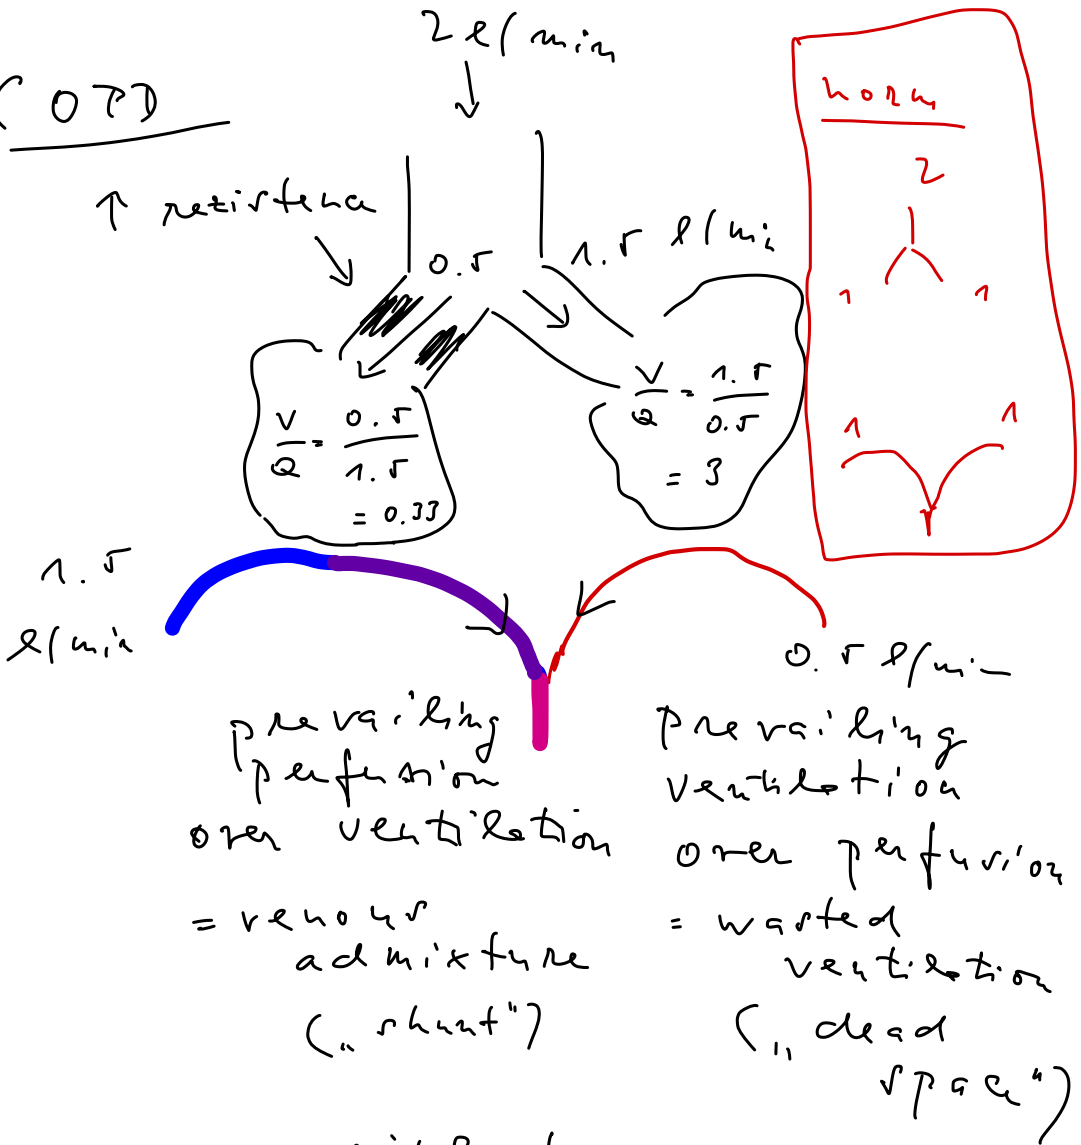 2 l/min
COPD
↑ rezistence
0.5
1.5 l/min
V/Q = 0.5/1.5
= 0.33
V/Q = 1.5/0.5
= 3
norm
2
1 1
1 1
1.5
l/min
0.5 l/min
prevailing
perfusion
over ventilation
= venous
admixture
(„shunt")
prevailing
ventilation
over perfusion
= wasted
ventilation
(„dead
space")